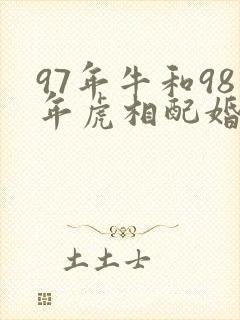 97年牛和98
年虎相配婚
土土士